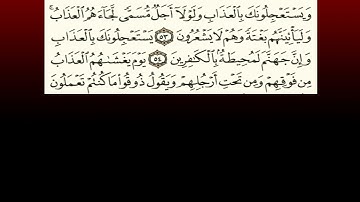 وَيَسْتَعْجِلُونَكَ بِالْعَذَابِ وَلَوْلَآ أَجَلٌ مُّسَمًّى لَّجَآءَهُمُ الْعَذَابُ ۚ
وَلَيَأْتِيَنَّهُم بَغْتَةً وَهُمْ لَا يَشْعُرُونَ ٥٣ يَسْتَعْجِلُونَكَ بِالْعَذَابِ
وَإِنَّ جَهَنَّمَ لَمُحِيطَةٌۢ بِالْكَٰفِرِينَ ٥٤ يَوْمَ يَغْشَىٰهُمُ الْعَذَابُ
مِن فَوْقِهِمْ وَمِن تَحْتِ أَرْجُلِهِمْ وَيَقُولُ ذُوقُوا۟ مَا كُنتُمْ تَعْمَلُونَ